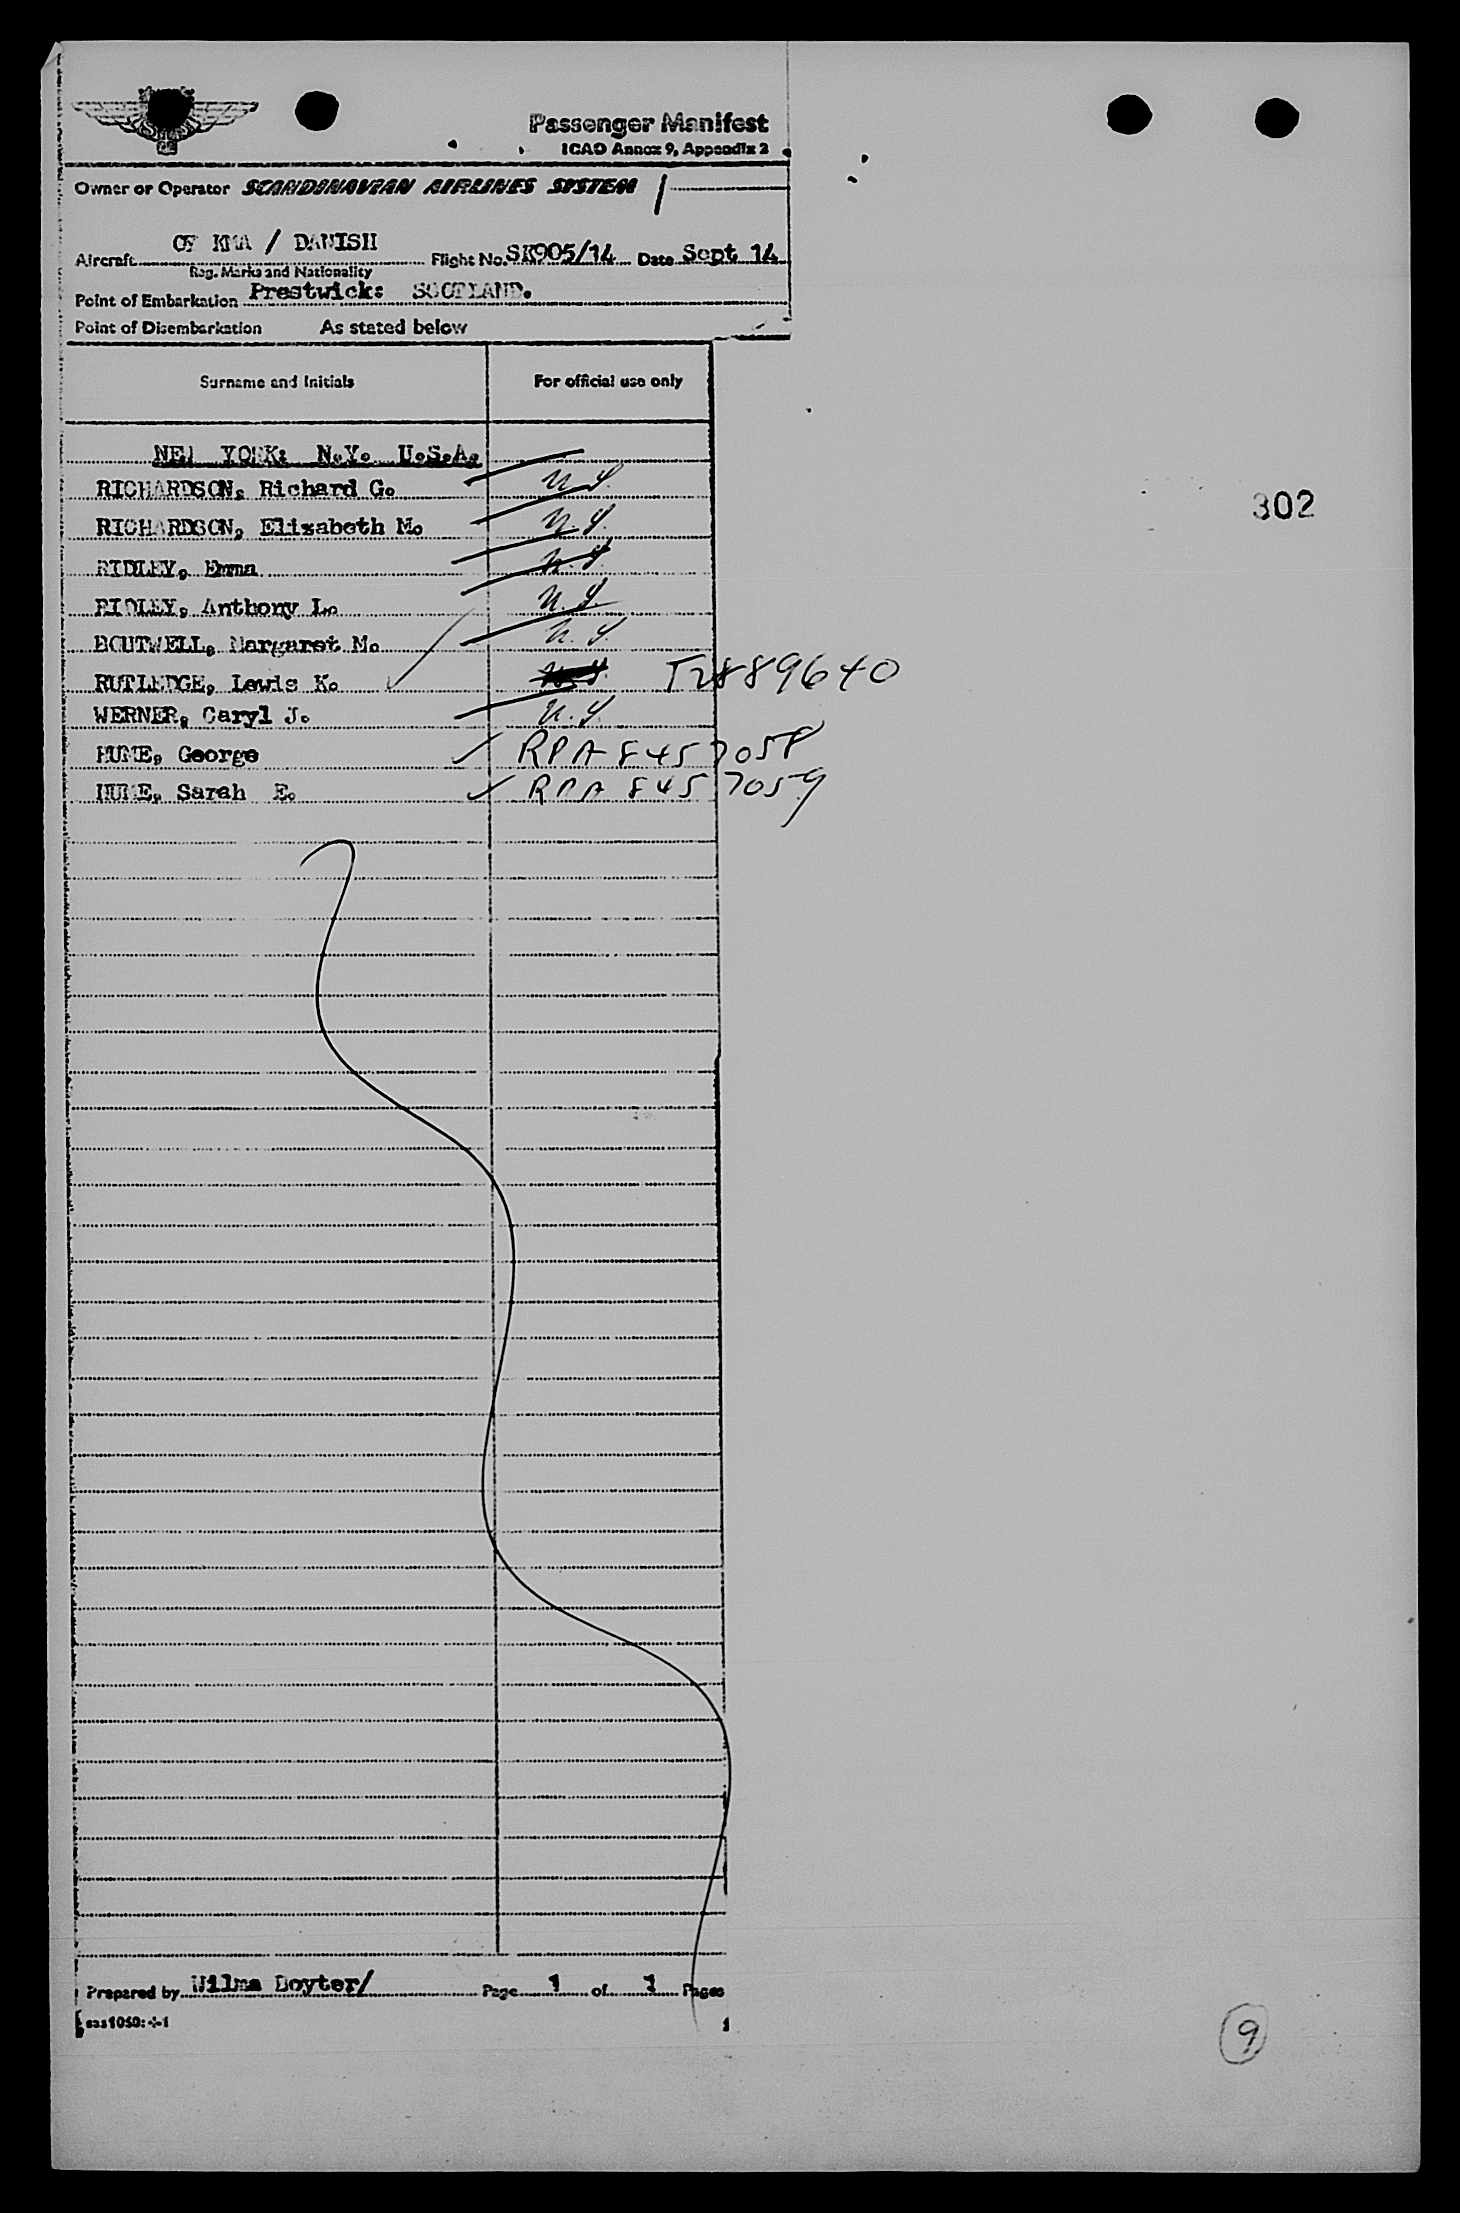 Passenger Manifest
ICAO Annex 9, Appendix 2
Owner or Operator SCANDINAVIAN AIRLINES SYSTEM
Aircraft OY KMA / DANISH Flight No. SK905/14 Date Sept 14
Reg. Marks and Nationality
Point of Embarkation Prestwick: SCOTLAND.
Point of Disembarkation As stated below
Surname and Initials For official use only
NEW YORK: N.Y. U.S.A.
RICHARDSON, Richard G.
302
RICHARDSON, Elizabeth M.
RIDLEY, Emma
RIDLEY, Anthony L.
BOUTWELL, Margaret M.
RUTLEDGE, Lewis K. T2889640
WERNER, Caryl J.
HUME, George RPA 8457058
HUME, Sarah E. RPA 8457059
Prepared by Wilma Doyter/ Page 1 of 1 Pages
9